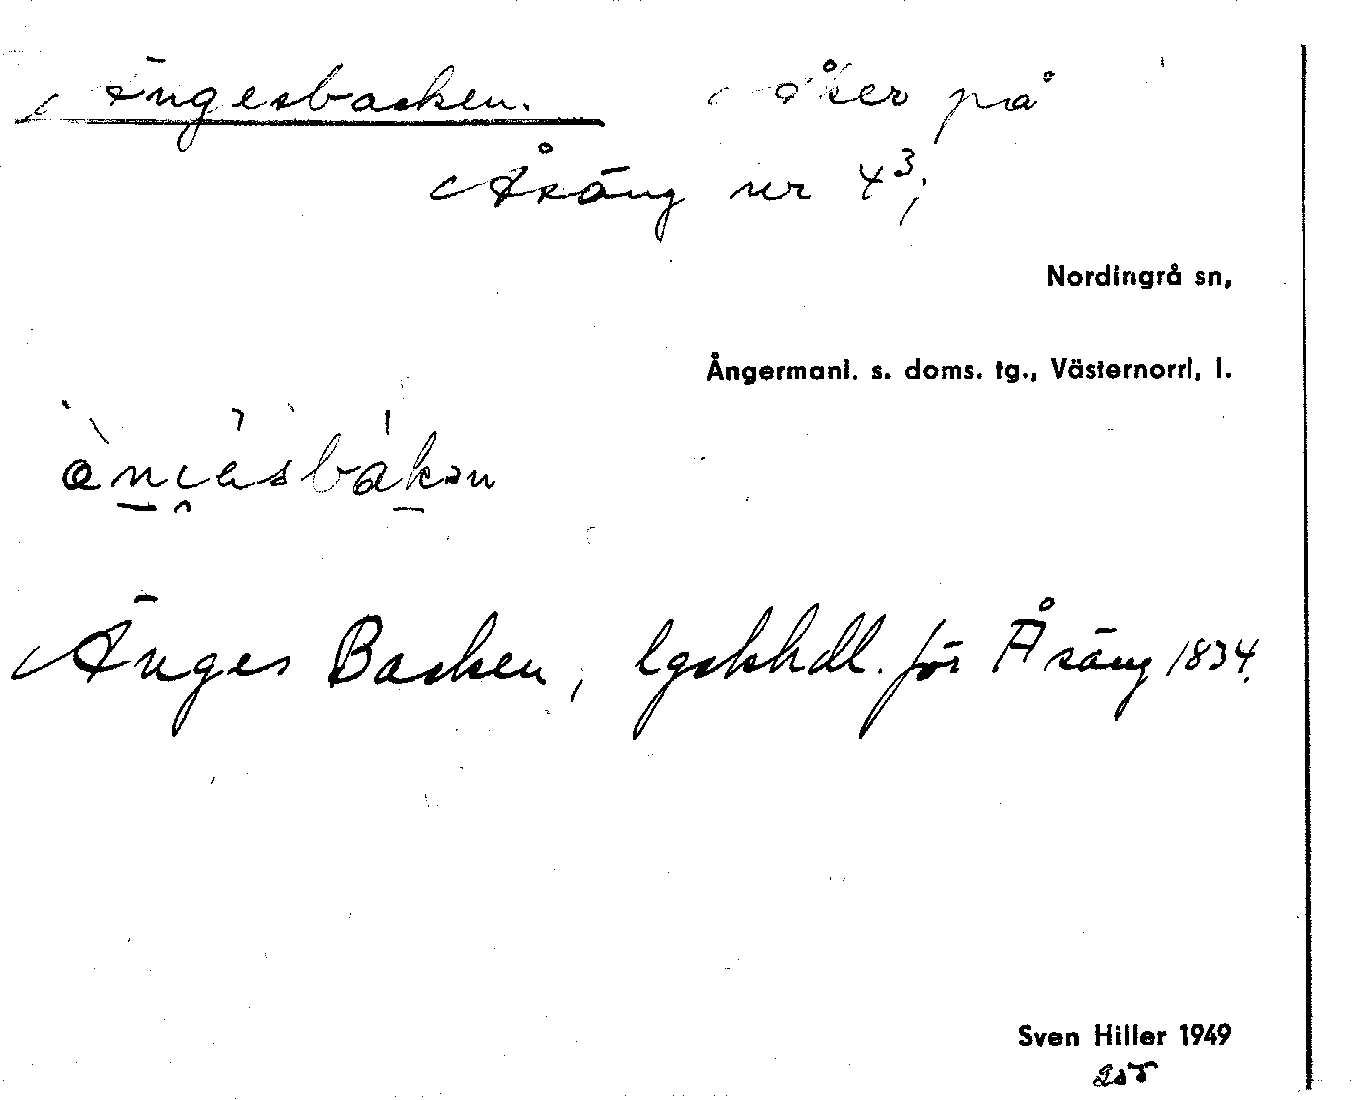 Ängesbacken. Åker på
Åsäng nr 4³;
Nordingrå sn,
Ångermanl. s. doms. tg., Västernorrl, l.
Änges Backen, lgskhdl. för Åsäng 1834.
Sven Hiller 1949
255